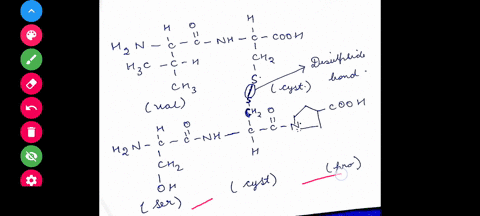 H O H
H₂N - C - C - NH - C - COOH
H₃C - C - H CH₂
CH₃ S
(val) (cyst)
Disulphide
bond.
S
CH₂ O COOH
H₂N - C - C - NH - C - C - N
O
H
CH₂ H
OH
(ser) (cyst) (pro)